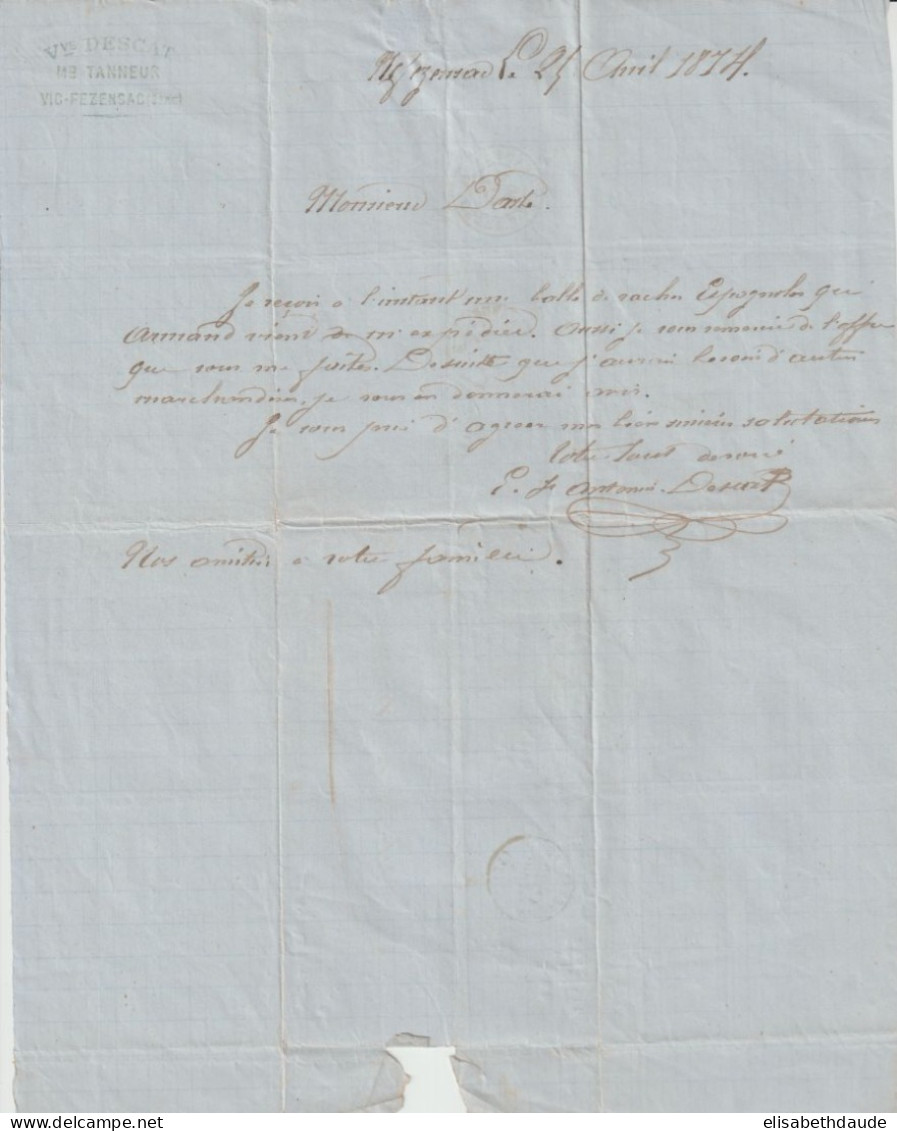 Vve DESCAT
Md TANNEUR
VIC-FEZENSAC (Gers)
Vic fezensac Le 25 Avril 1874.
Monsieur
Je reçois a l'instant une balle de vaches Espagnoles que
Armand vient de m'expédier. aussi je vous remercie de l'offre
que vous me faites. Desuitte que j'aurai besoin d'autres
marchandises, je vous en donnerai avis.
Je vous prie d'agreer mes bien sincères salutations
Votre tout devoué
E. F. Antonin Descat
Nos amitiés a votre famille.
elisabethdaude